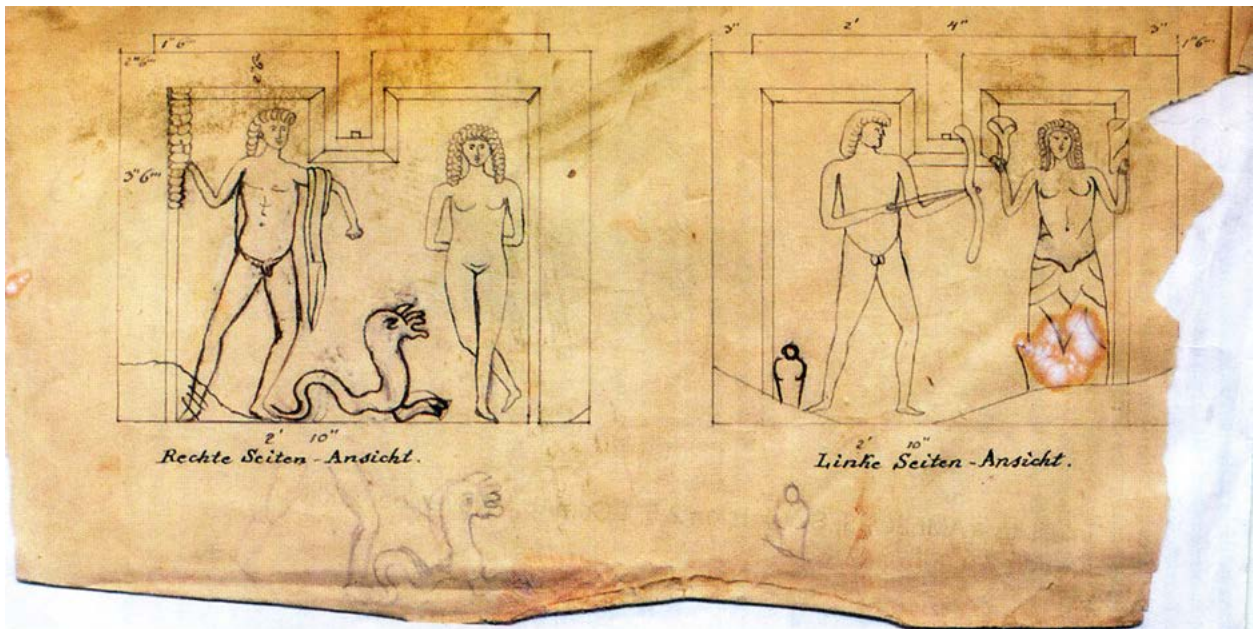 1" 6'''
2" 6'''
3" 6'''
2' 10"
Rechte Seiten-Ansicht.
3" 2' 4" 3"
1" 6'''
2' 10"
Linke Seiten-Ansicht.